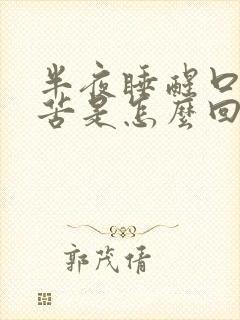 半夜睡醒口
苦是怎麼回
郭茂倩